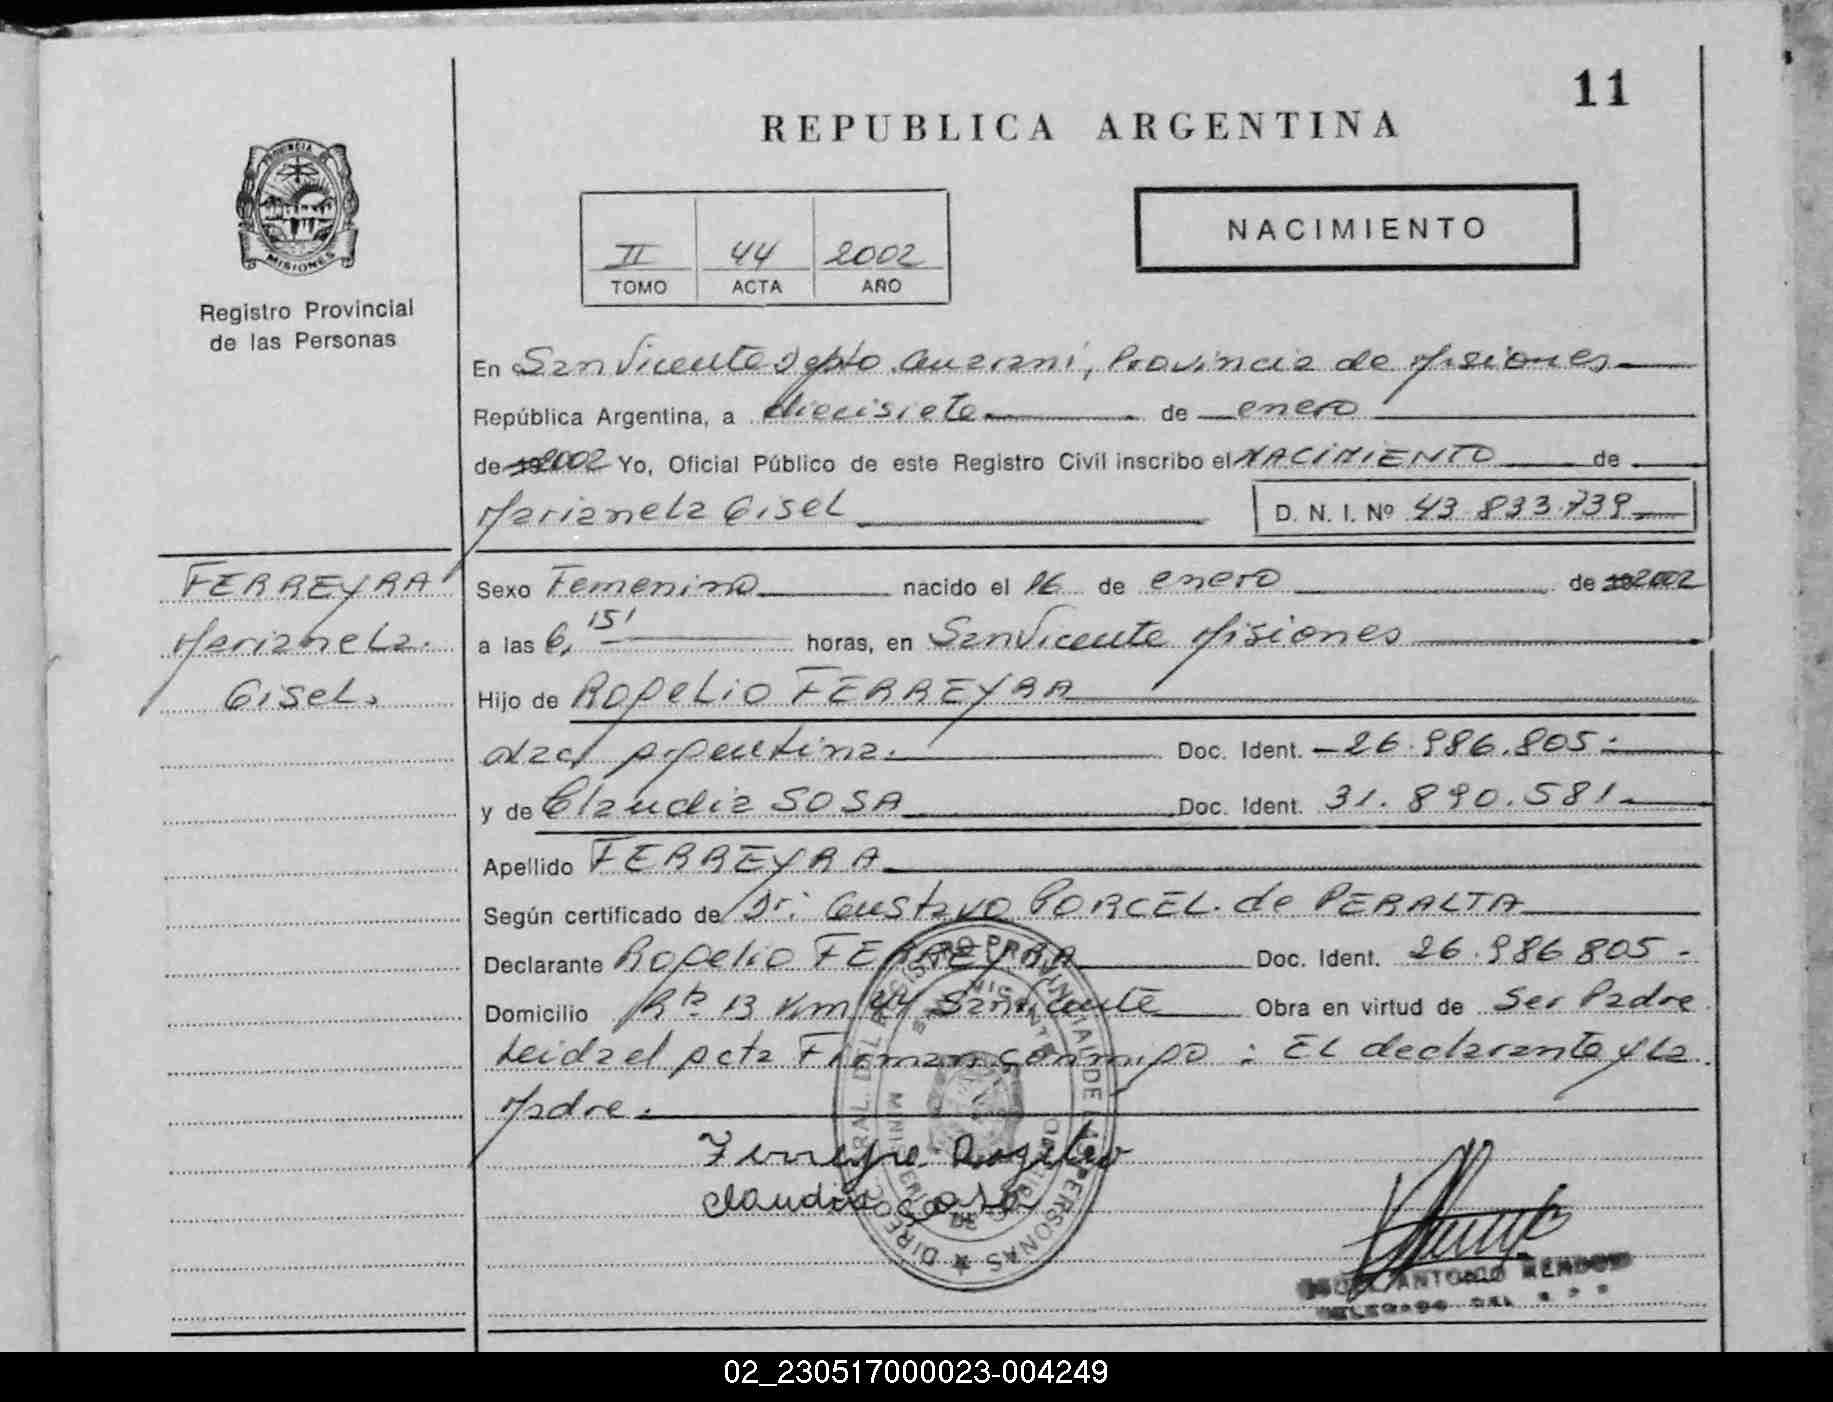 11
REPUBLICA ARGENTINA
PROVINCIA DE
MISIONES
Registro Provincial
de las Personas
NACIMIENTO
II 44 2002
TOMO ACTA AÑO
En San Vicente Depto Guarani, Provincia de Misiones
República Argentina, a diecisiete de enero
de 19 2002 Yo, Oficial Público de este Registro Civil inscribo el NACIMIENTO de
Marianela Gisel D. N. I. Nº 43 833.739
FERREYRA
Marianela.
Gisel.
Sexo Femenino nacido el 16 de enero de 19 2002
a las 6,15' horas, en San Vicente Misiones
Hijo de Rogelio FERREYRA
nac/ argentina. Doc. Ident. 26.986.805
y de Claudia SOSA Doc. Ident. 31.890.581
Apellido FERREYRA
Según certificado de Dr. Gustavo PORCEL. de PERALTA
Declarante Rogelio FERREYRA Doc. Ident. 26.986 805
Domicilio Rta 13 Km 44 San Vicente Obra en virtud de Ser Padre
Leida el acta Firman conmigo : EL declarante y La
Madre.
Ferreyra Rogelio
claudia sosa
DIRECC. GRAL. DEL REGISTRO PROVINCIAL DE LAS PERSONAS
SAN VICENTE
MISIONES
ANTONIO
DELEGADO DEL
02_230517000023-004249